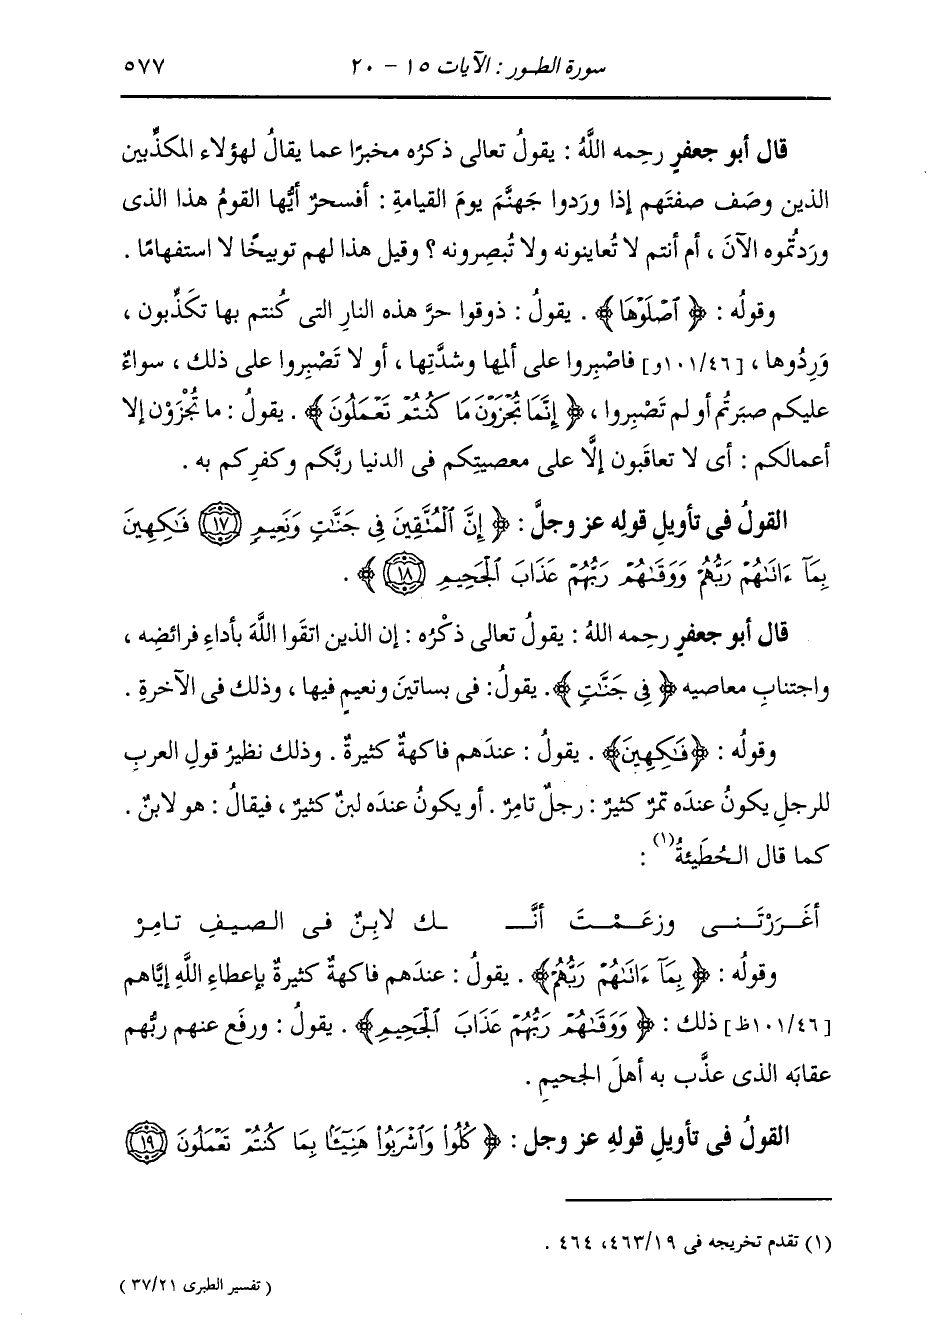 سورة الطور : الآيات ١٥ - ٢٠ ٥٧٧
قال أبو جعفرٍ رحِمه اللَّهُ : يقولُ تعالى ذكرُه مخبرًا عما يقالُ لهؤلاء المكذِّبين
الذين وصَف صفتَهم إذا ورَدوا جَهنَّمَ يومَ القيامةِ : أفسحرٌ أيُّها القومُ هذا الذى
ورَدتُموه الآنَ ، أم أنتم لا تُعاينونه ولا تُبصِرونه ؟ وقيل هذا لهم توبيخًا لا استفهامًا .
وقولُه : ﴿ ٱصْلَوْهَا﴾ . يقولُ : ذوقوا حرَّ هذه النارِ التى كُنتم بها تكَذِّبون ،
وَرِدُوها ، [١٠١/٤٦و] فاصْبِروا على ألمِها وشدَّتِها ، أو لا تَصْبِروا على ذلك ، سواءٌ
عليكم صبَرتُم أو لم تَصْبِروا ، ﴿ إِنَّمَا تُجْزَوْنَ مَا كُنتُمْ تَعْمَلُونَ ﴾ . يقولُ : ما تُجْزَوْن إلا
أعمالَكم : أى لا تعاقَبون إلَّا على معصيتِكم فى الدنيا ربَّكم وكفرِكم به .
القولُ فى تأويلِ قولِه عز وجلَّ : ﴿ إِنَّ ٱلْمُتَّقِينَ فِى جَنَّٰتٍ وَنَعِيمٍ ⁧١٧⁩ فَٰكِهِينَ
بِمَآ ءَاتَىٰهُمْ رَبُّهُمْ وَوَقَىٰهُمْ رَبُّهُمْ عَذَابَ ٱلْجَحِيمِ ١٨ ﴾ .
قال أبو جعفرٍ رحمه اللهُ : يقولُ تعالى ذكْرُه : إن الذين اتقَوا اللَّهَ بأداءِ فرائضِه ،
واجتنابِ معاصيه ﴿ فِى جَنَّٰتٍ ﴾. يقولُ: فى بساتينَ ونعيمٍ فيها ، وذلك فى الآخرةِ .
وقولُه : ﴿فَٰكِهِينَ﴾ . يقولُ : عندَهم فاكهةٌ كثيرةٌ . وذلك نظيرُ قولِ العربِ
للرجلِ يكونُ عندَه تمرٌ كثيرٌ : رجلٌ تامِرٌ . أو يكونُ عندَه لبنٌ كثيرٌ ، فيقالُ : هو لابنٌ .
كما قال الحُطَيئةُ(١) :
أغَـرَرْتَـنـى وزعَـمْـتَ أنَّـ ـك لابِنٌ فى الصيفِ تامِرْ
وقولُه : ﴿ بِمَآ ءَاتَىٰهُمْ رَبُّهُمْ﴾ . يقولُ : عندَهم فاكهةٌ كثيرةٌ بإعطاءِ اللَّهِ إيَّاهم
[١٠١/٤٦ظ] ذلك : ﴿ وَوَقَىٰهُمْ رَبُّهُمْ عَذَابَ ٱلْجَحِيمِ﴾ . يقولُ : ورفَع عنهم ربُّهم
عقابَه الذى عذَّب به أهلَ الجحيمِ .
القولُ فى تأويلِ قولِه عز وجل : ﴿ كُلُوا۟ وَٱشْرَبُوا۟ هَنِيٓـًٔۢا بِمَا كُنتُمْ تَعْمَلُونَ ١٩
(١) تقدم تخريجه فى ٤٦٣/١٩، ٤٦٤ .
( تفسير الطبرى ٣٧/٢١ )